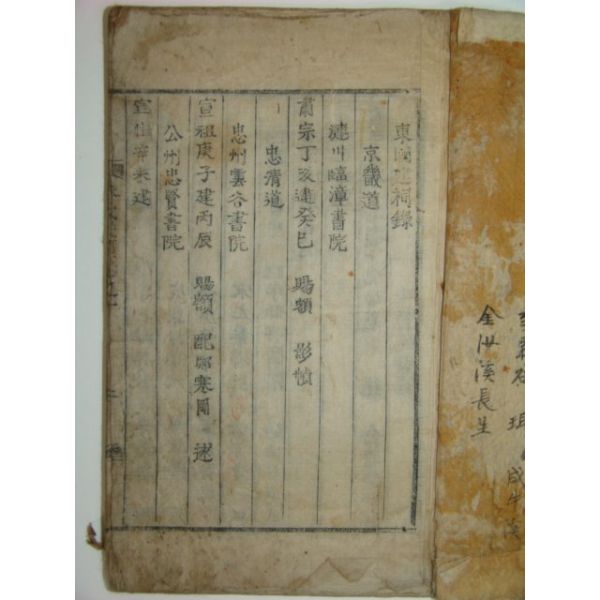 東國建祠錄
京畿道
漣川臨漳書院
肅宗丁亥建癸巳 賜額 影幀
忠淸道
忠州雲谷書院
宣祖庚子建丙辰 賜額 配鄭寒岡 逑
公州忠賢書院
宣祖辛未建
金沙溪長生